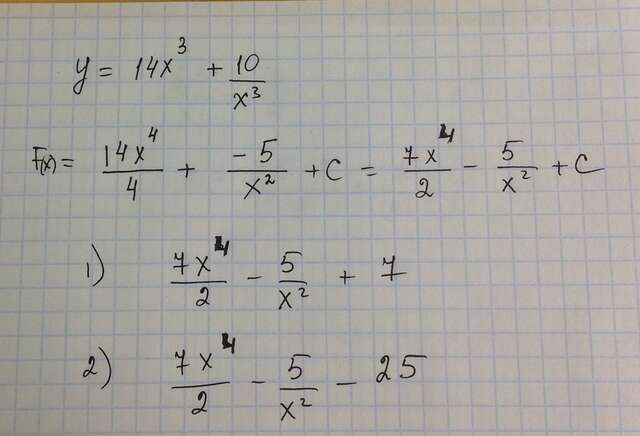 y = 14x³ + 10/x³
F(x) = 14x⁴/4 + -5/x² + C = 7x⁴/2 - 5/x² + C
1) 7x⁴/2 - 5/x² + 7
2) 7x⁴/2 - 5/x² - 25